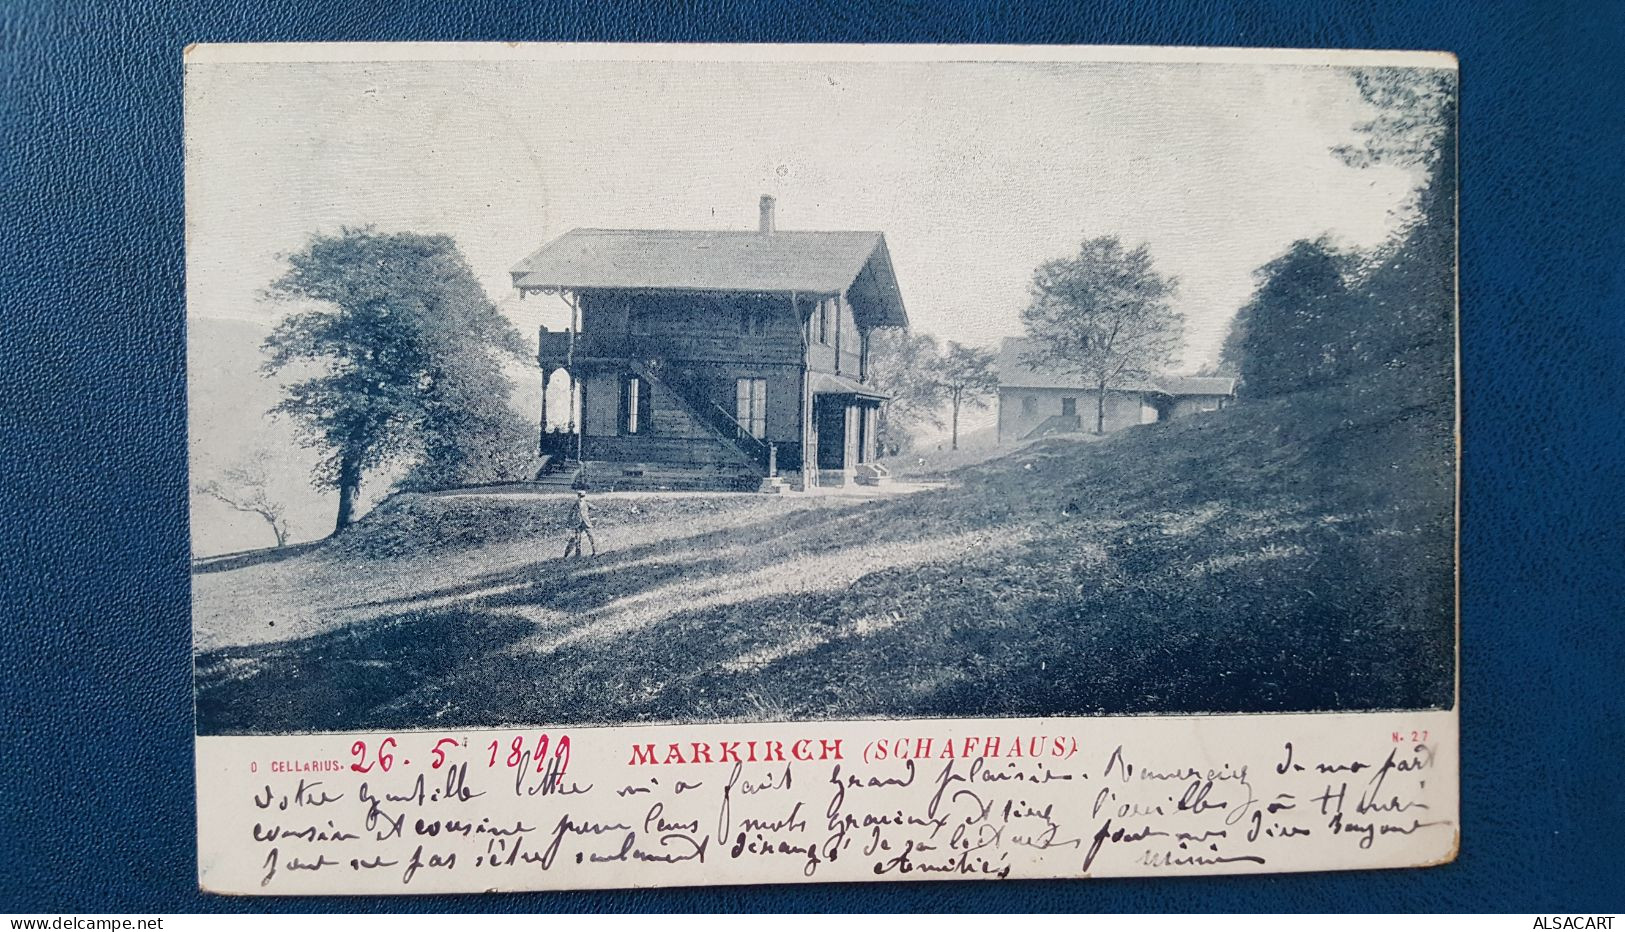 D CELLARIUS. 26. 5. 1899 MARKIRCH (SCHAFHAUS) N. 27
Votre gentille lettre m'a fait grand plaisir. Remerciez de ma part
cousin et cousine pour leurs mots gracieux et tirez l'oreille à Henri
pour ne pas s'être seulement dérangé de sa lecture pour me dire bonjour
Amitiés Mimi
ALSACART